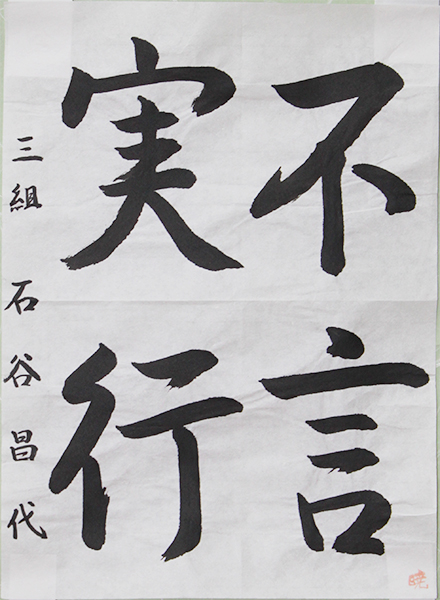 不言
実行
三組 石谷昌代
暁